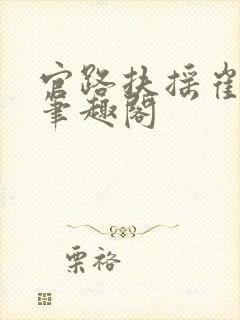 官路扶摇崔
笔趣阁
栗裕